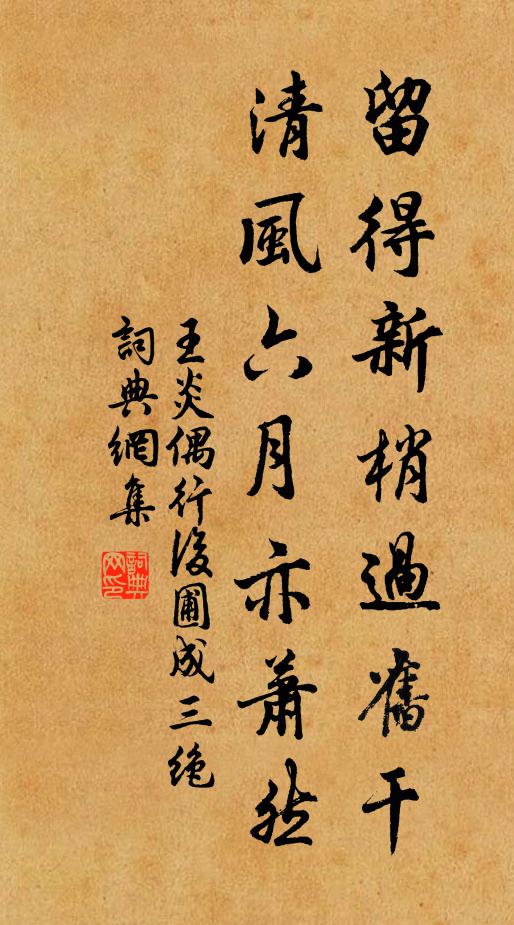 留得新梢過舊干
清風六月亦蕭然
王炎偶行後圃成三絶
詞典網集
詞典
网印